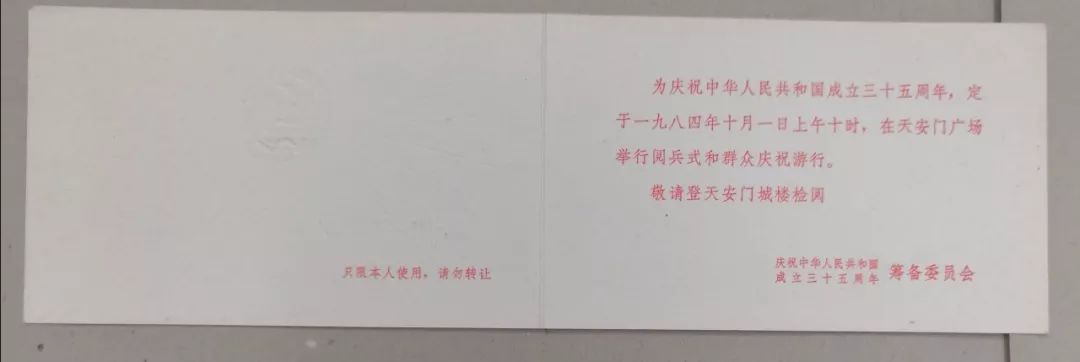 只限本人使用，请勿转让
为庆祝中华人民共和国成立三十五周年，定
于一九八四年十月一日上午十时，在天安门广场
举行阅兵式和群众庆祝游行。
敬请登天安门城楼检阅
庆祝中华人民共和国
成立三十五周年
筹备委员会